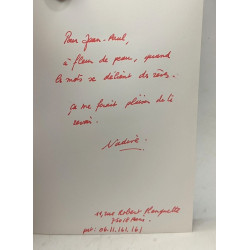 Pour Jean-Paul,
à fleur de peau, quand
les mots se délient des rêves.
ça me ferait plaisir de te
revoir.
Nadine
11, rue Robert Planquette
75018 Paris